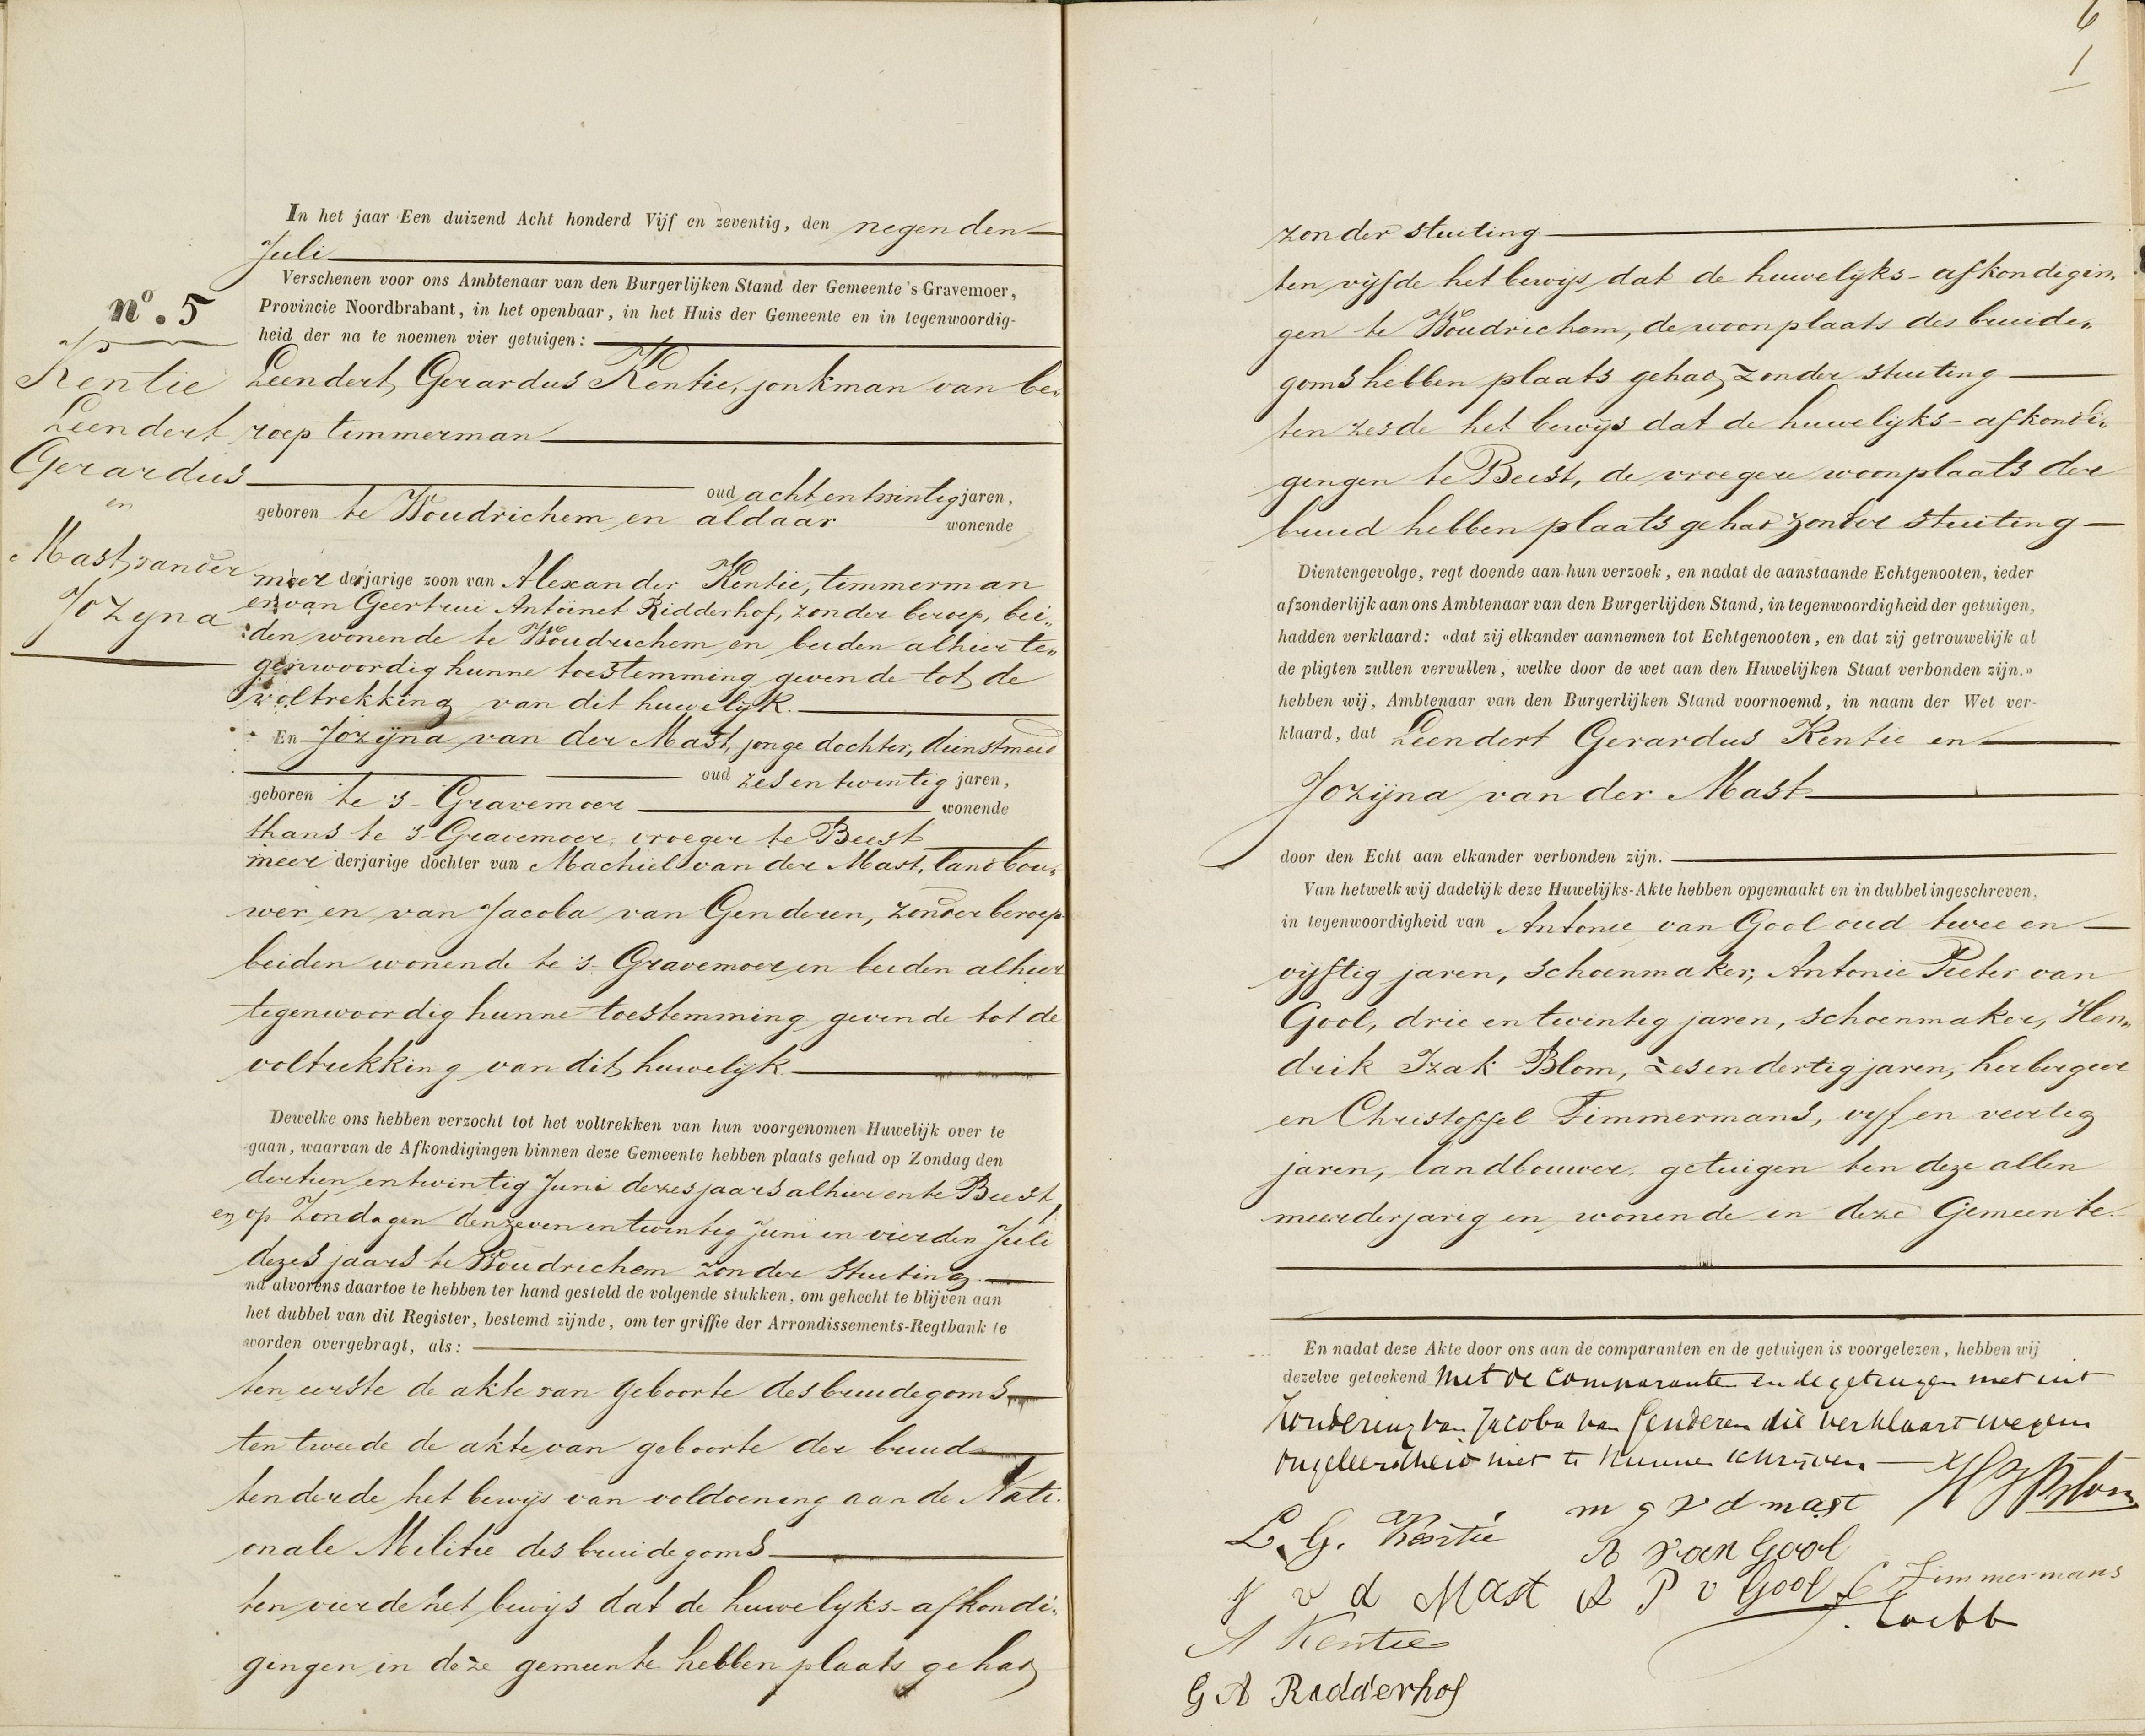 6
1
In het jaar Een duizend Acht honderd Vijf en zeventig, den negenden
Juli
Verschenen voor ons Ambtenaar van den Burgerlijken Stand der Gemeente 's Gravemoer,
Provincie Noordbrabant, in het openbaar, in het Huis der Gemeente en in tegenwoordig-
heid der na te noemen vier getuigen:
no. 5
Kentie
Leendert
Gerardus
en
Mast, van der
Jozyna
Leendert Gerardus Kentie, jonkman van be„
roep timmerman
oud acht en twintig jaren,
geboren te Woudrichem en aldaar wonende
meer derjarige zoon van Alexander Kentie, timmerman
en van Geertrui Antoinet Ridderhof, zonder beroep, bei„
den wonende te Woudrichem en beiden alhier te„
genwoordig hunne toestemming gevende tot de
voltrekking van dit huwelijk.
En Jozijna van der Mast, jonge dochter, dienstmeid
oud zes en twintig jaren,
geboren te 's Gravemoer wonende
thans te 's Gravemoer, vroeger te Beest
meer derjarige dochter van Machiel van der Mast, landbou„
wer en van Jacoba van Genderen, zonder beroep
beiden wonende te 's Gravemoer en beiden alhier
tegenwoordig hunne toestemming gevende tot de
voltrekking van dit huwelijk
Dewelke ons hebben verzocht tot het voltrekken van hun voorgenomen Huwelijk over te
gaan, waarvan de Afkondigingen binnen deze Gemeente hebben plaats gehad op Zondag den
dertien en twintig Juni dezes jaars alhier en te Beest,
en op Zondagen den zeven en twintig Juni en vierden Juli
dezes jaars te Woudrichem zonder stuiting.
na alvorens daartoe te hebben ter hand gesteld de volgende stukken, om gehecht te blijven aan
het dubbel van dit Register, bestemd zijnde, om ter griffie der Arrondissements-Regtbank te
worden overgebragt, als:
ten eerste de akte van geboorte des bruidegoms
ten tweede de akte van geboorte der bruid
ten derde het bewijs van voldoening aan de Nati.
onale Militie des bruidegoms
ten vierde het bewijs dat de huwelyks-afkondi„
gingen in deze gemeente hebben plaats gehad
zonder stuiting
ten vijfde het bewijs dat de huwelijks-afkondigin„
gen te Woudrichem, de woonplaats des bruide„
goms hebben plaats gehad zonder stuiting
ten zesde het bewijs dat de huwelyks-afkondi„
gingen te Beest, de vroegere woonplaats der
bruid hebben plaats gehad zonder stuiting
Dientengevolge, regt doende aan hun verzoek, en nadat de aanstaande Echtgenooten, ieder
afzonderlijk aan ons Ambtenaar van den Burgerlijden Stand, in tegenwoordigheid der getuigen,
hadden verklaard: «dat zij elkander aannemen tot Echtgenooten, en dat zij getrouwelijk al
de pligten zullen vervullen, welke door de wet aan den Huwelijken Staat verbonden zijn.»
hebben wij, Ambtenaar van den Burgerlijken Stand voornoemd, in naam der Wet ver-
klaard, dat Leendert Gerardus Kentie en
Jozijna van der Mast
door den Echt aan elkander verbonden zijn.
Van hetwelk wij dadelijk deze Huwelijks-Akte hebben opgemaakt en in dubbel ingeschreven,
in tegenwoordigheid van Antonie van Gool oud twee en
vijftig jaren, schoenmaker, Antonie Pieter van
Gool, drie en twintig jaren, schoenmaker, Hen„
drik Izak Blom, zes en dertig jaren, herbergier
en Christoffel Timmermans, vijf en veertig
jaren, landbouwer, getuigen ten deze allen
meerderjarig en wonende in deze Gemeente.
En nadat deze Akte door ons aan de comparanten en de getuigen is voorgelezen, hebben wij
dezelve geteekend met de comparanten en de getuigen met uit
zondering van Jacoba van Genderen die verklaart wegens
ongeleerdheid niet te kunnen schrijven
H I Blom
m g v d mast
L. G. Kentie
A van Gool
C Timmermans
J v d Mast
A P v Gool
A Kentie
G A Ridderhof